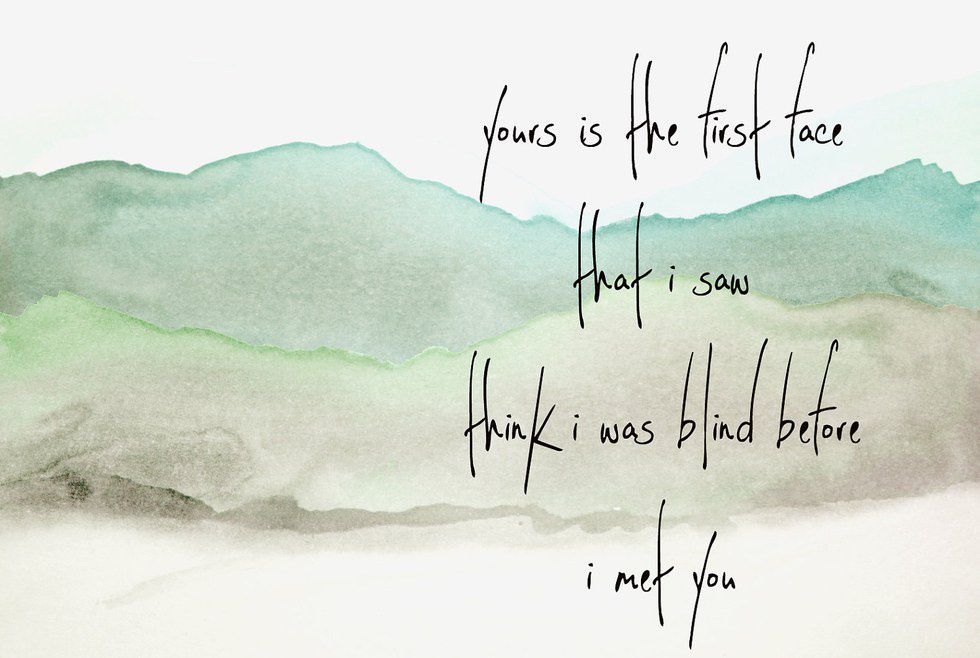 yours is the first face
that i saw
think i was blind before
i met you